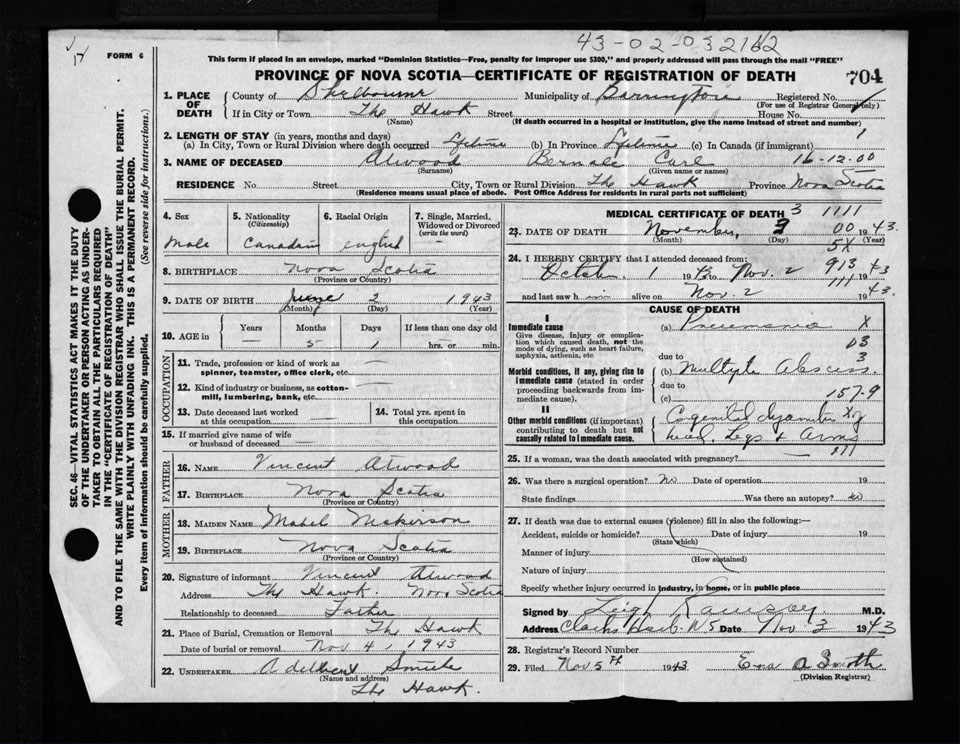 43-02-032162
17
FORM 6
This form if placed in an envelope, marked "Dominion Statistics—Free, penalty for improper use $300," and properly addressed will pass through the mail "FREE"
PROVINCE OF NOVA SCOTIA—CERTIFICATE OF REGISTRATION OF DEATH
704
1. PLACE OF DEATH
County of Shelbourne Municipality of Barrington Registered No.
(For use of Registrar General only)
If in City or Town The Hawk Street House No.
(Name) (If death occurred in a hospital or institution, give the name instead of street and number)
2. LENGTH OF STAY (in years, months and days)
(a) In City, Town or Rural Division where death occurred Lifetime (b) In Province Lifetime (c) In Canada (if immigrant) 1
3. NAME OF DECEASED Atwood Carl 16-12.00
(Surname) (Given name or names)
RESIDENCE No. Street City, Town or Rural Division The Hawk Province Nova Scotia
(Residence means usual place of abode. Post Office Address for residents in rural parts not sufficient)
4. Sex
Male
5. Nationality
(Citizenship)
Canadain
6. Racial Origin
English
7. Single, Married, Widowed or Divorced
(write the word)
—
8. BIRTHPLACE Nova Scotia
(Province or Country)
9. DATE OF BIRTH June 2 1943
(Month) (Day) (Year)
10. AGE in
Years Months Days If less than one day old
— 5 1 hrs. or min.
OCCUPATION
11. Trade, profession or kind of work as spinner, teamster, office clerk, etc.
12. Kind of industry or business, as cotton-mill, lumbering, bank, etc.
13. Date deceased last worked at this occupation
14. Total yrs. spent in this occupation
15. If married give name of wife or husband of deceased
FATHER
16. NAME Vincent Atwood
17. BIRTHPLACE Nova Scotia
(Province or Country)
MOTHER
18. MAIDEN NAME Mabel
19. BIRTHPLACE Nova Scotia
(Province or Country)
20. Signature of informant Vincent Atwood
Address The Hawk. Nova Scotia
Relationship to deceased Father
21. Place of Burial, Cremation or Removal The Hawk
Date of burial or removal Nov 4, 1943
22. UNDERTAKER
(Name and address)
The Hawk.
MEDICAL CERTIFICATE OF DEATH 3 1111
23. DATE OF DEATH November, 3 00 1943.
(Month) (Day) 5X (Year)
24. I HEREBY CERTIFY that I attended deceased from:
1 1943 to Nov. 2 913 1943
111
and last saw h im alive on Nov. 2 1943.
CAUSE OF DEATH
I
Immediate cause
Give disease, injury or complication which caused death, not the mode of dying, such as heart failure, asphyxia, asthenia, etc
(a) Pneumonia X
03
due to 3
Morbid conditions, if any, giving rise to immediate cause (stated in order proceeding backwards from immediate cause).
(b) Multiple Abscess
due to
(c) 157-9
II
Other morbid conditions (if important) contributing to death but not causally related to immediate cause.
head, Legs & Arms
111
25. If a woman, was the death associated with pregnancy?
26. Was there a surgical operation? no Date of operation 19
State findings Was there an autopsy? no
27. If death was due to external causes (violence) fill in also the following:—
Accident, suicide or homicide? Date of injury 19
(State which)
Manner of injury
(How sustained)
Nature of injury
Specify whether injury occurred in industry, in home, or in public place
Signed by Leigh M.D.
Address Clarks Harb. N S Date Nov 3 1943
28. Registrar's Record Number
29. Filed Nov 5th 1943 Ena A Smith
(Division Registrar)
SEC. 46—VITAL STATISTICS ACT MAKES IT THE DUTY
OF THE UNDERTAKER OR PERSON ACTING AS UNDER-
TAKER TO OBTAIN ALL THE PARTICULARS REQUIRED
IN THE "CERTIFICATE OF REGISTRATION OF DEATH"
AND TO FILE THE SAME WITH THE DIVISION REGISTRAR WHO SHALL ISSUE THE BURIAL PERMIT.
WRITE PLAINLY WITH UNFADING INK. THIS IS A PERMANENT RECORD.
Every item of information should be carefully supplied. (See reverse side for instructions.)